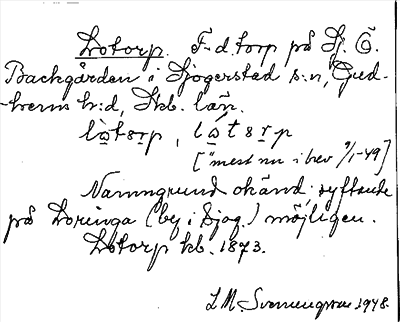 Lotorp. F-d. torp på Sj. Ö.
Backgården i Sjogerstad s:n, Gud-
-hems h:d, Skb. län.
lo̱tsr̠p, lo̱tsr̠p
["mest nu i brev 9/1-49]
Namngrund okänd: syftande
på Loringa (by i Sjog.) möjligen.
Lotorp kb. 1873.
L.M. Svenungsson 1948.